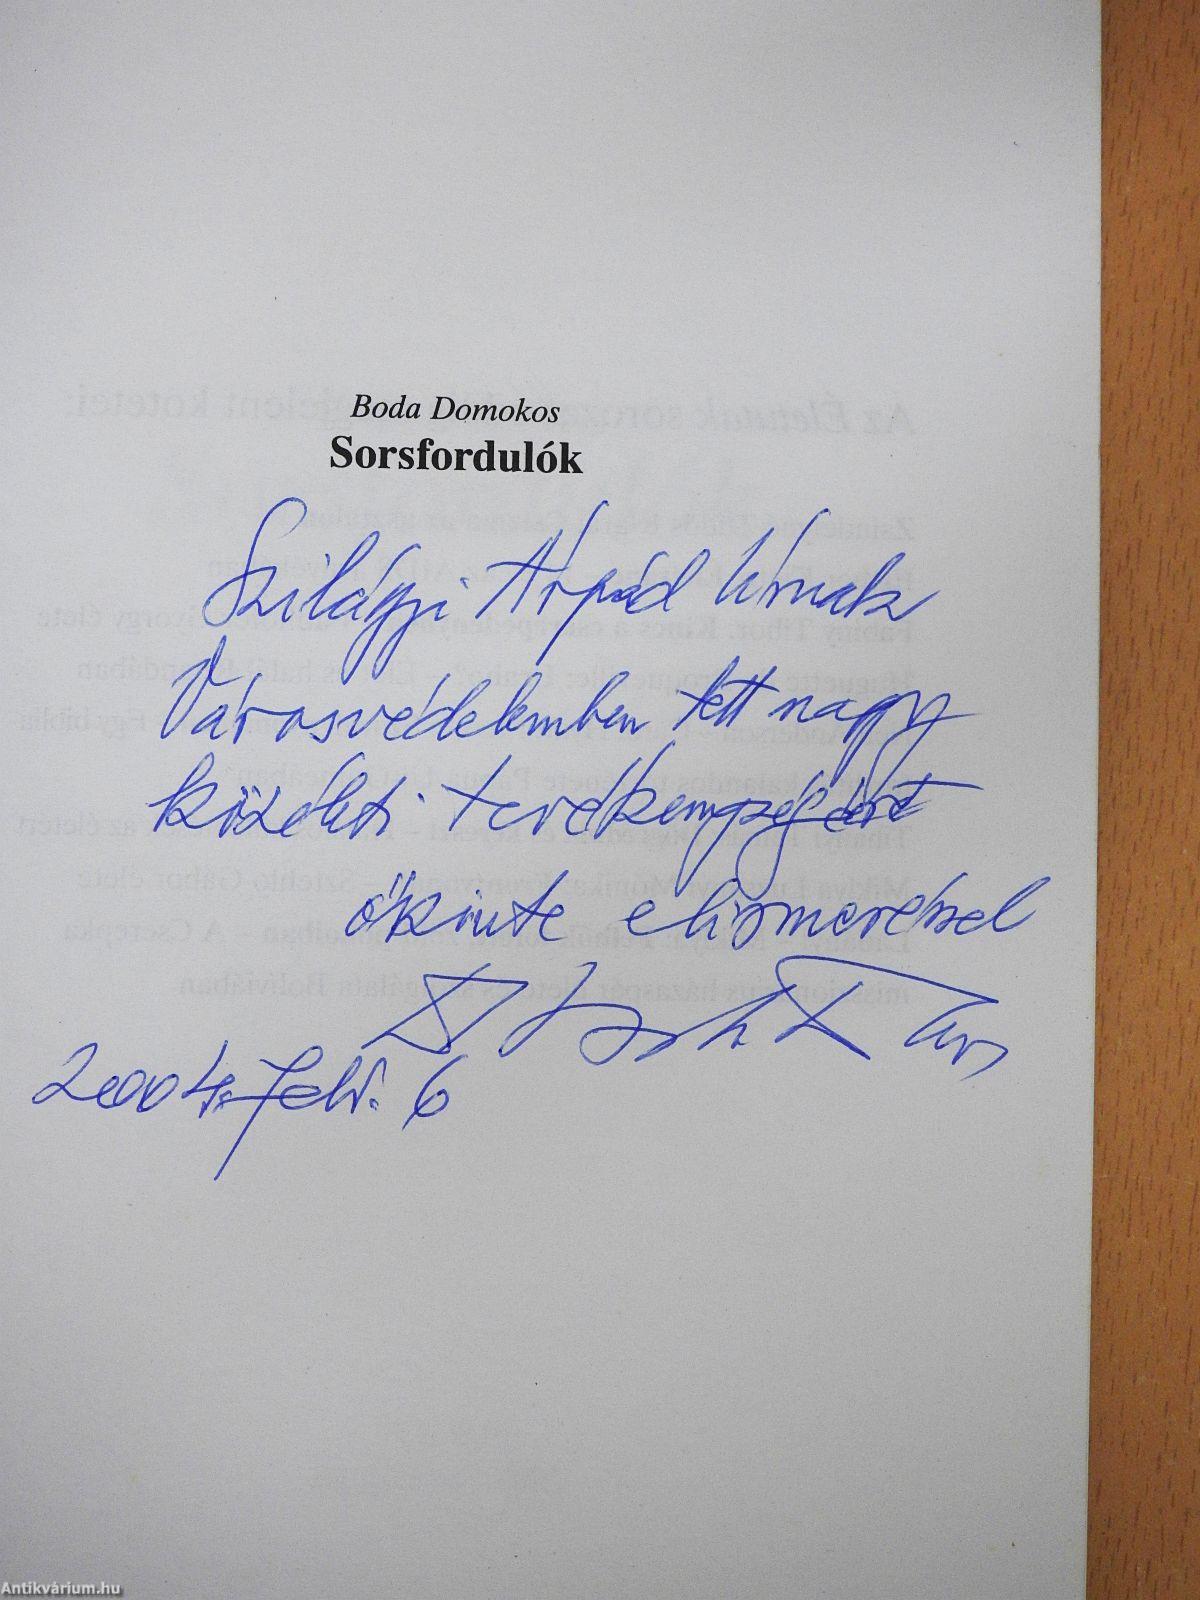 Boda Domokos
Sorsfordulók
Szilágyi Árpád Úrnak
Városvédelemben tett nagy
közéleti tevékenységéért
őszinte elismeréssel
2004. febr. 6
Antikvárium.hu